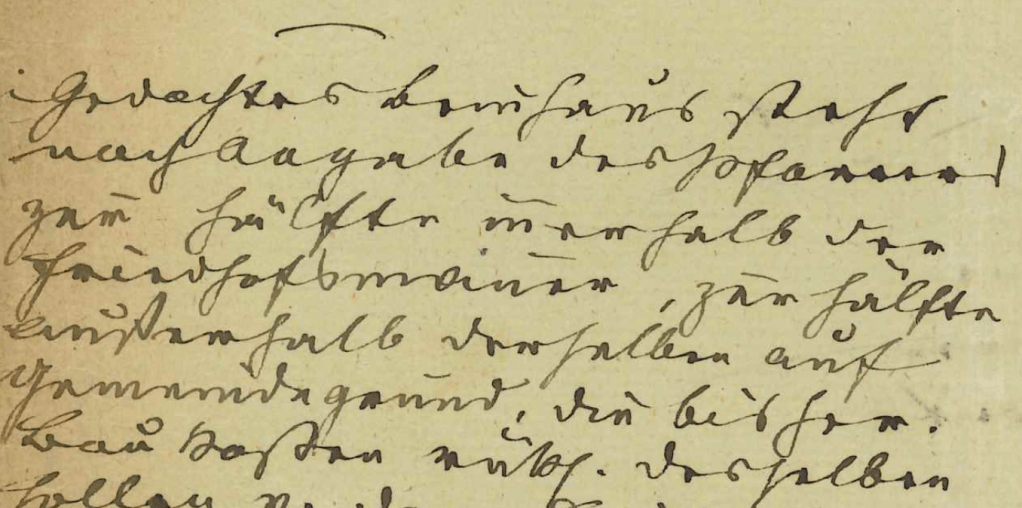 Gedachtes Beinhaus steht
nach Angabe des Pfarrers
zur Hälfte innerhalb der
Friedhofsmauer, zur Hälfte
außerhalb derselben auf
Gemeindegrund, die bisher.
Baukosten rücks. desselben
sollen